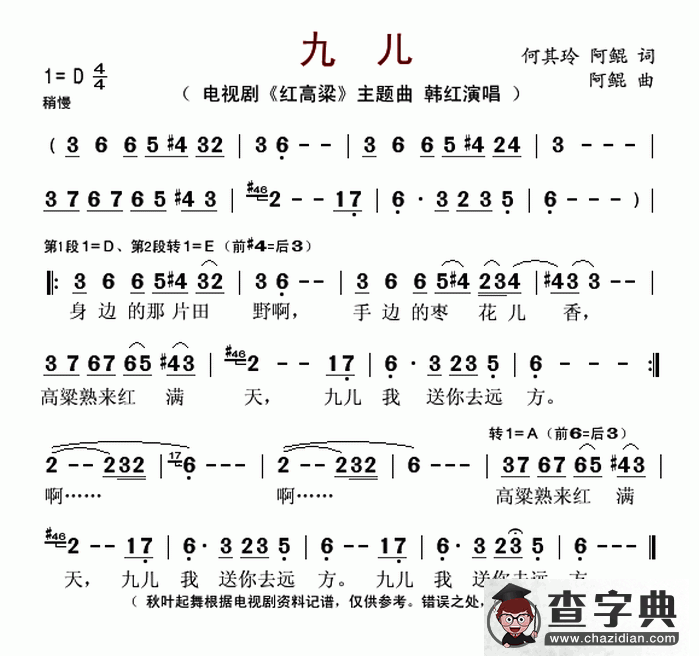 九 儿
何其玲 阿鲲 词
1= D 4/4
阿鲲 曲
稍慢
( 电视剧《红高粱》主题曲 韩红演唱 )
( 3 6 6 5 #4 32 | 3 6 - - | 3 6 6 5 #4 24 | 3 - - - |
3 7 6 7 6 5 #4 3 | #46 2 - - 1 7 | 6 · 3 2 3 5 | 6 - - - ) |
第1段1=D、第2段转1=E(前#4=后3)
‖: 3 6 6 5 #4 32 | 3 6 - - | 3 6 6 5 #4 234 | #43 3 - - |
身 边 的那 片田 野啊, 手 边 的枣 花 儿 香,
3 7 67 65 #43 | #46 2 - - 1 7 | 6 · 3 23 5 | 6 - - - :‖
高粱熟来红 满 天, 九儿 我 送你去远 方。
转1=A(前6=后3)
2 - - 232 | 17 6 - - - | 2 - - 232 | 6 - - - | 37 67 65 #43 |
啊…… 啊…… 高粱熟来红 满
#46 2 - - 1 7 | 6 · 3 23 5 | 6 - - 1 7 | 6 · 3 23 5 | 6 - - - ‖
天, 九儿 我 送你去远 方。九儿 我 送你去远 方
( 秋叶起舞根据电视剧资料记谱,仅供参考。错误之处,
查字典
www.chazidian.com